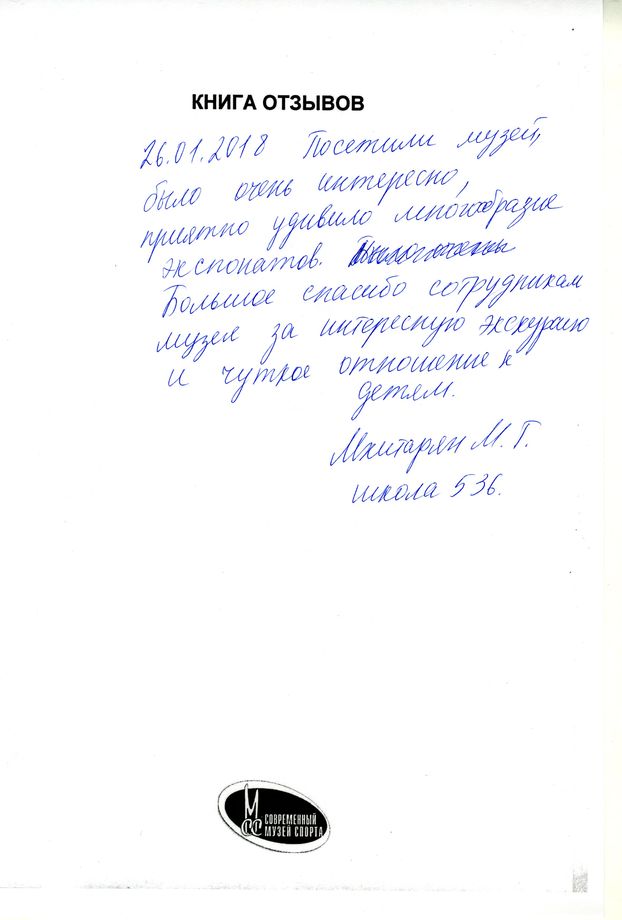 КНИГА ОТЗЫВОВ
26.01.2018 Посетили музей,
было очень интересно,
приятно удивило многообразие
экспонатов.
Большое спасибо сотрудникам
музея за интересную экскурсию
и чуткое отношение к
детям.
Мхитарян М. Г.
школа 536.
МСС СОВРЕМЕННЫЙ
МУЗЕЙ СПОРТА